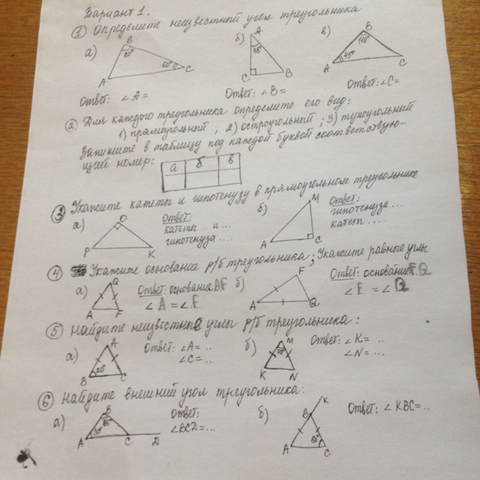 Вариант 1.
① Определите неизвестный угол треугольника
а) б) в)
A B C
A C B
A B C
Ответ: ∠A= Ответ: ∠B= Ответ: ∠C=
② Для каждого треугольника определите его вид:
1) прямоугольный, 2) остроугольный; 3) тупоугольный
Запишите в таблицу под каждой буквой соответствую-
щий номер:
а б в
③ Укажите катеты и гипотенузу в прямоугольном треугольнике
а) P O K Ответ: катеты ... и ... гипотенуза ...
б) A M C Ответ: гипотенуза ... катеты ...
④ Укажите основание р/б треугольника; Укажите равные углы
а) A Q F Ответ: основание AF ∠A = ∠F
б) A F Q Ответ: основание FQ ∠F = ∠Q
⑤ Найдите неизвестные углы р/б треугольника:
а) A B C Ответ: ∠A= .. ∠C= ..
б) M K N Ответ: ∠K= .. ∠N= ..
⑥ Найдите внешний угол треугольника:
а) A B C D Ответ: ∠BCD= ..
б) A B C K Ответ: ∠KBC= ..